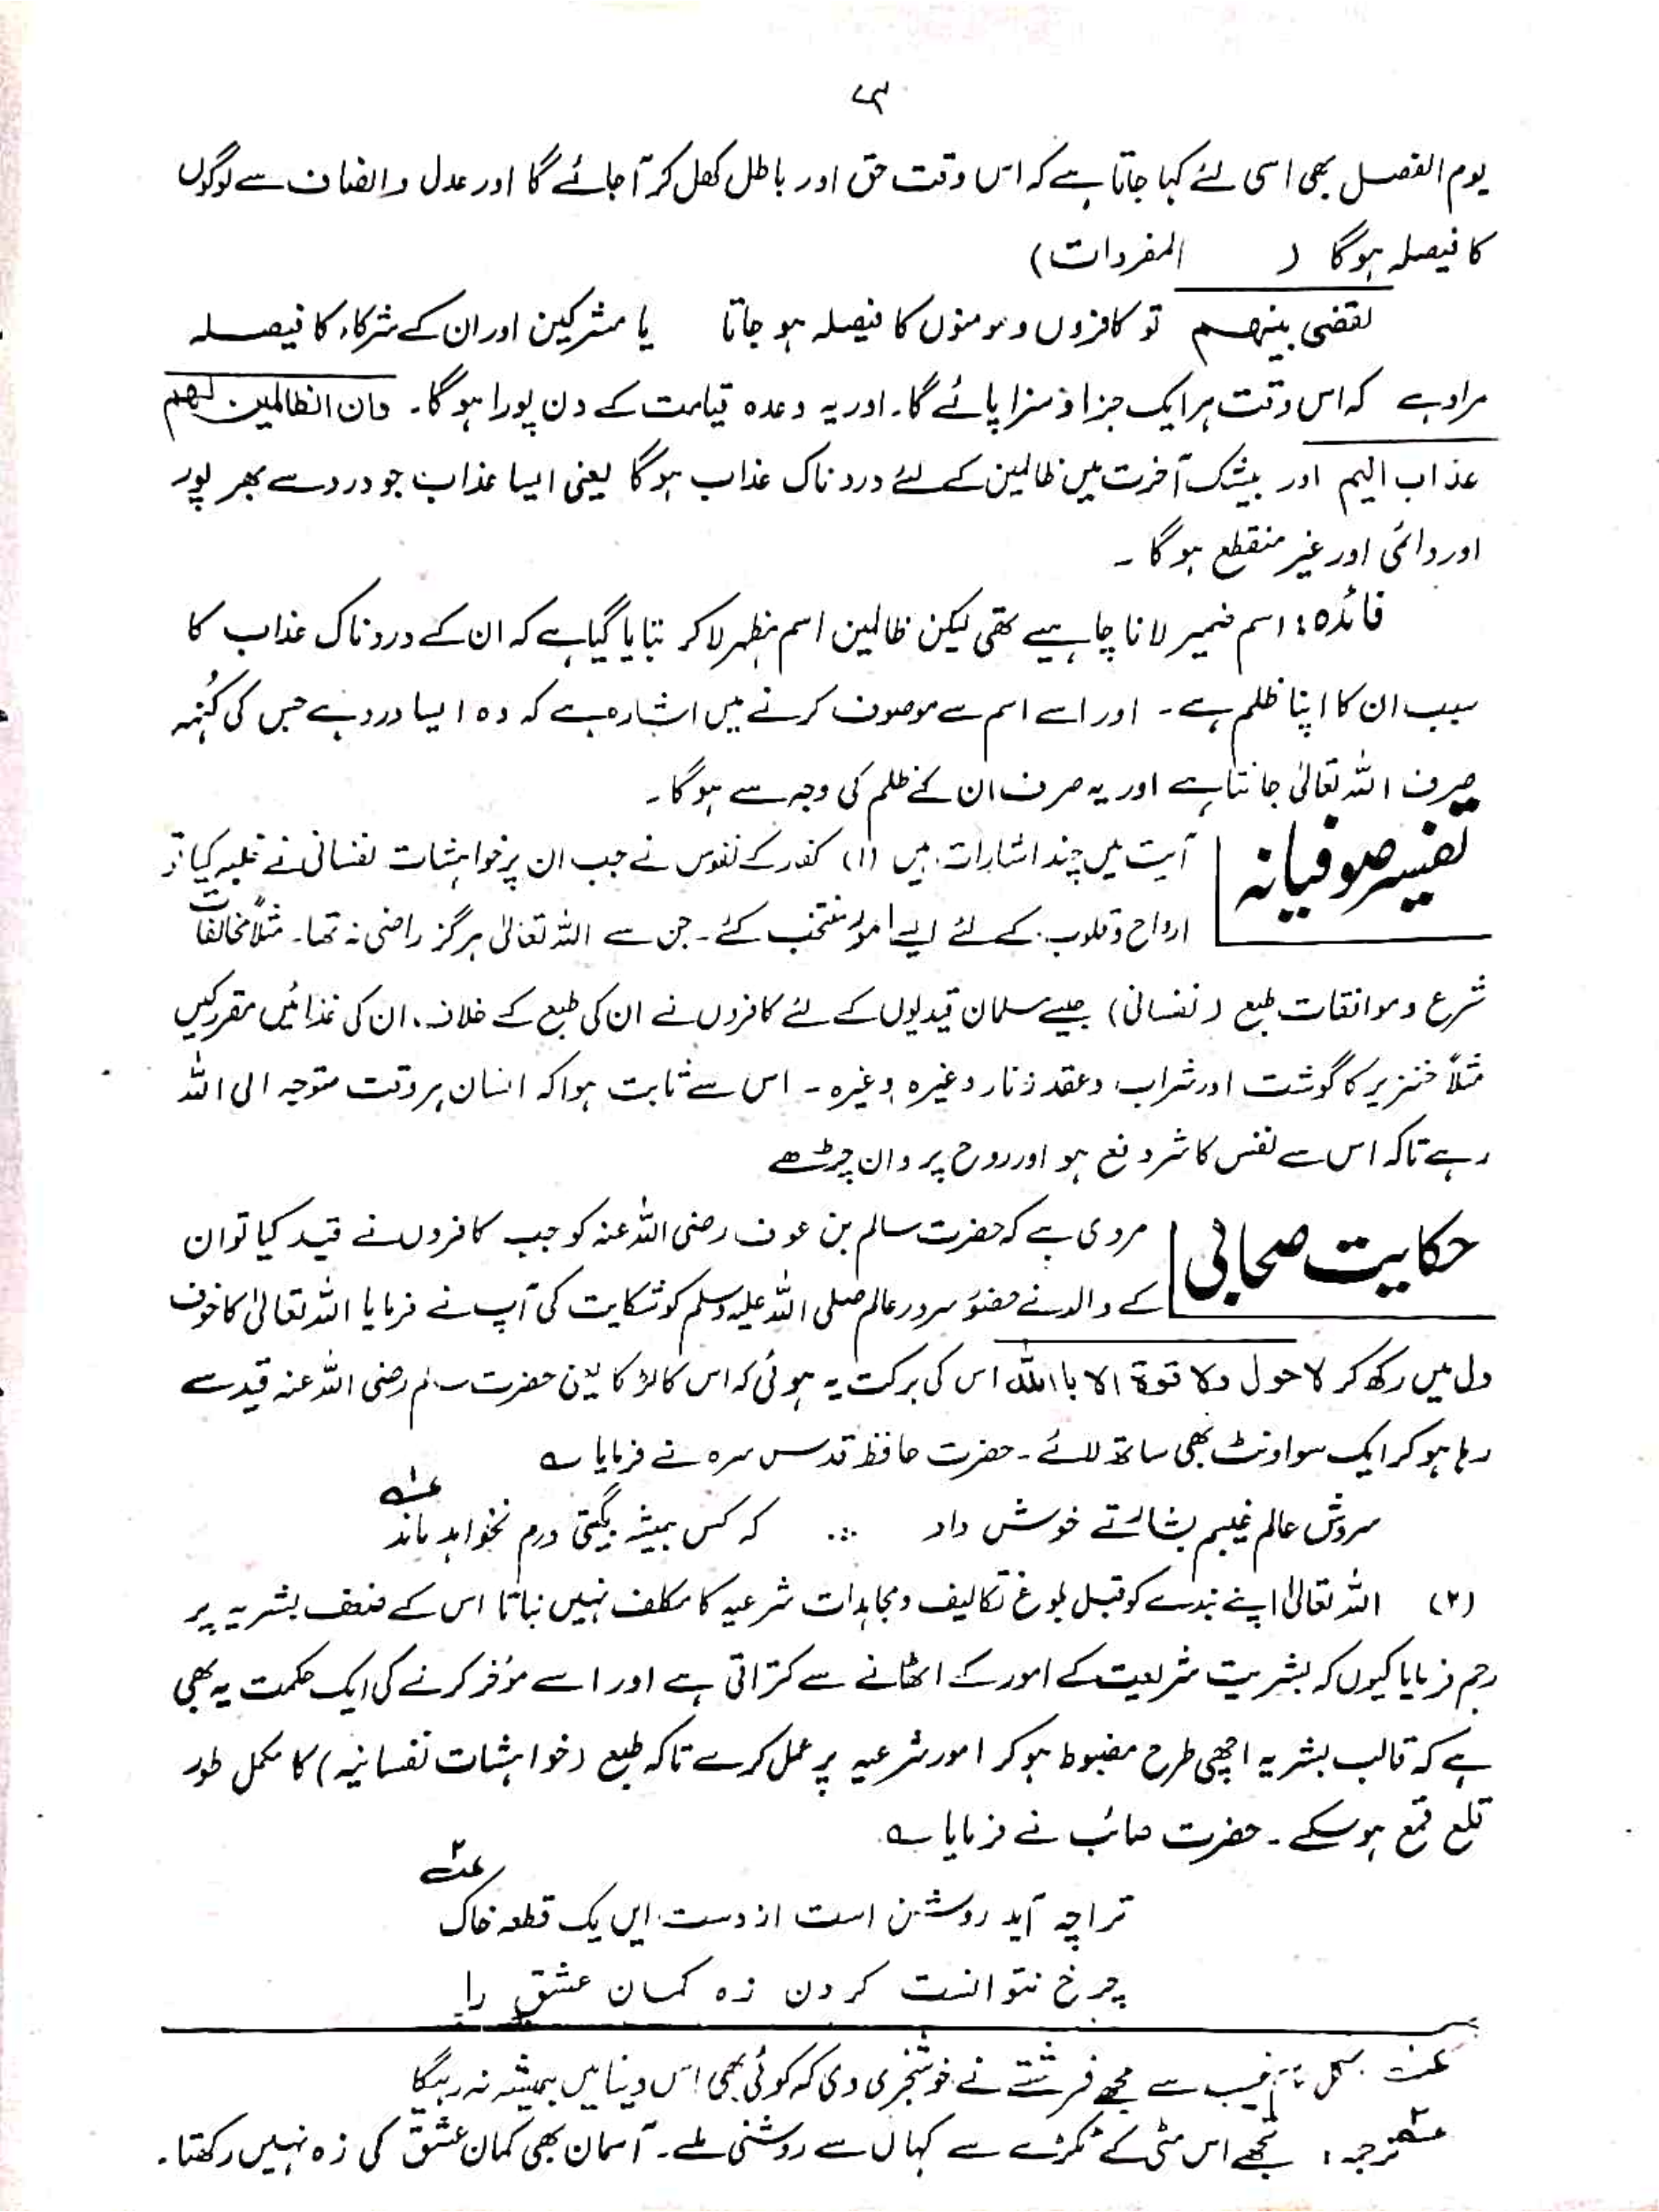 ۳
یوم الفصل بھی اسی لئے کہا جاتا ہے کہ اس وقت حق اور باطل کھل کر آ جائے گا اور عدل و انصاف سے لوگوں
کا فیصلہ ہو گا ( المفردات)
لقضی بینھم تو کافروں و مومنوں کا فیصلہ ہو جاتا یا مشرکین اور ان کے شرکاء کا فیصلہ
مراد ہے کہ اس وقت ہر ایک جزا و سزا پائے گا۔ اور یہ وعدہ قیامت کے دن پورا ہو گا۔ وان الظالمین لھم
عذاب الیم اور بیشک آخرت میں ظالمین کے لئے درد ناک عذاب ہو گا یعنی ایسا عذاب جو درد سے بھر پور
اور دائمی اور غیر منقطع ہو گا ۔
فائدہ : اسم ضمیر لانا چاہیے تھی لیکن ظالمین اسم مظہر لا کر بتایا گیا ہے کہ ان کے درد ناک عذاب کا
سبب ان کا اپنا ظلم ہے ۔ اور اسے اسم سے موصوف کرنے میں اشارہ ہے کہ وہ ایسا درد ہے جس کی کُنہہ
صرف اللہ تعالیٰ جانتا ہے اور یہ صرف ان کے ظلم کی وجہ سے ہو گا ۔
تفسیر صوفیانہ
آیت میں چند اشارات ہیں (۱) کفار کے نفوس نے جب ان پر خواہشات نفسانی نے غلبہ کیا تو
ارواح و قلوب کے لئے ایسے امور منتخب کئے ۔ جن سے اللہ تعالیٰ ہرگز راضی نہ تھا۔ مثلاً مخالفات
شرع و موافقات طبع (نفسانی) جیسے مسلمان قیدیوں کے لئے کافروں نے ان کی طبع کے خلاف ، ان کی غذائیں مقرر کیں
مثلاً خنزیر کا گوشت اور شراب و عقد زنار وغیرہ وغیرہ ۔ اس سے ثابت ہوا کہ انسان ہر وقت متوجہ الی اللہ
رہے تاکہ اس سے نفس کا شر دفع ہو اور روح پر وان چڑھے
حکایت صحابی
مروی ہے کہ حضرت سالم بن عوف رضی اللہ عنہ کو جب کافروں نے قید کیا تو ان
کے والد نے حضور سرور عالم صلی اللہ علیہ وسلم کو شکایت کی آپ نے فرمایا اللہ تعالیٰ کا خوف
دل میں رکھ کر لا حول ولا قوۃ الا باللہ اس کی برکت یہ ہوئی کہ اس کا لڑکا یعنی حضرت سالم رضی اللہ عنہ قید سے
رہا ہو کر ایک سو اونٹ بھی ساتھ لائے ۔ حضرت حافظ قدس سرہ نے فرمایا ؎
سروش عالم غیبم بشارتے خوش داد ∴ کہ کس ہمیشہ بگیتی درم نخواہد ماند عہ۱
(۲) اللہ تعالیٰ اپنے بندے کو قبل بلوغ تکالیف و مجاہدات شرعیہ کا مکلف نہیں بناتا اس کے ضعف بشریہ پر
رحم فرمایا کیوں کہ بشریت شریعت کے امور کے اٹھانے سے کتراتی ہے اور اسے مؤخر کرنے کی ایک حکمت یہ بھی
ہے کہ قالب بشریہ اچھی طرح مضبوط ہو کر امور شرعیہ پر عمل کرے تاکہ طبع (خواہشات نفسانیہ) کا مکمل طور
قلع قمع ہو سکے ۔ حضرت صائب نے فرمایا ؎
تراچہ آید روشن است از دست ایں یک قطعہ خاک عہ۲
چرخ نتوانست کردن زہ کمان عشق را
غیب سے مجھے فرشتے نے خوشخبری دی کہ کوئی بھی اس دنیا میں ہمیشہ نہ رہیگا
عہ۲ ترجمہ : تجھے اس مٹی کے ٹکڑے سے کہاں سے روشنی ملے ۔ آسمان بھی کمان عشق کی زہ نہیں رکھتا ۔